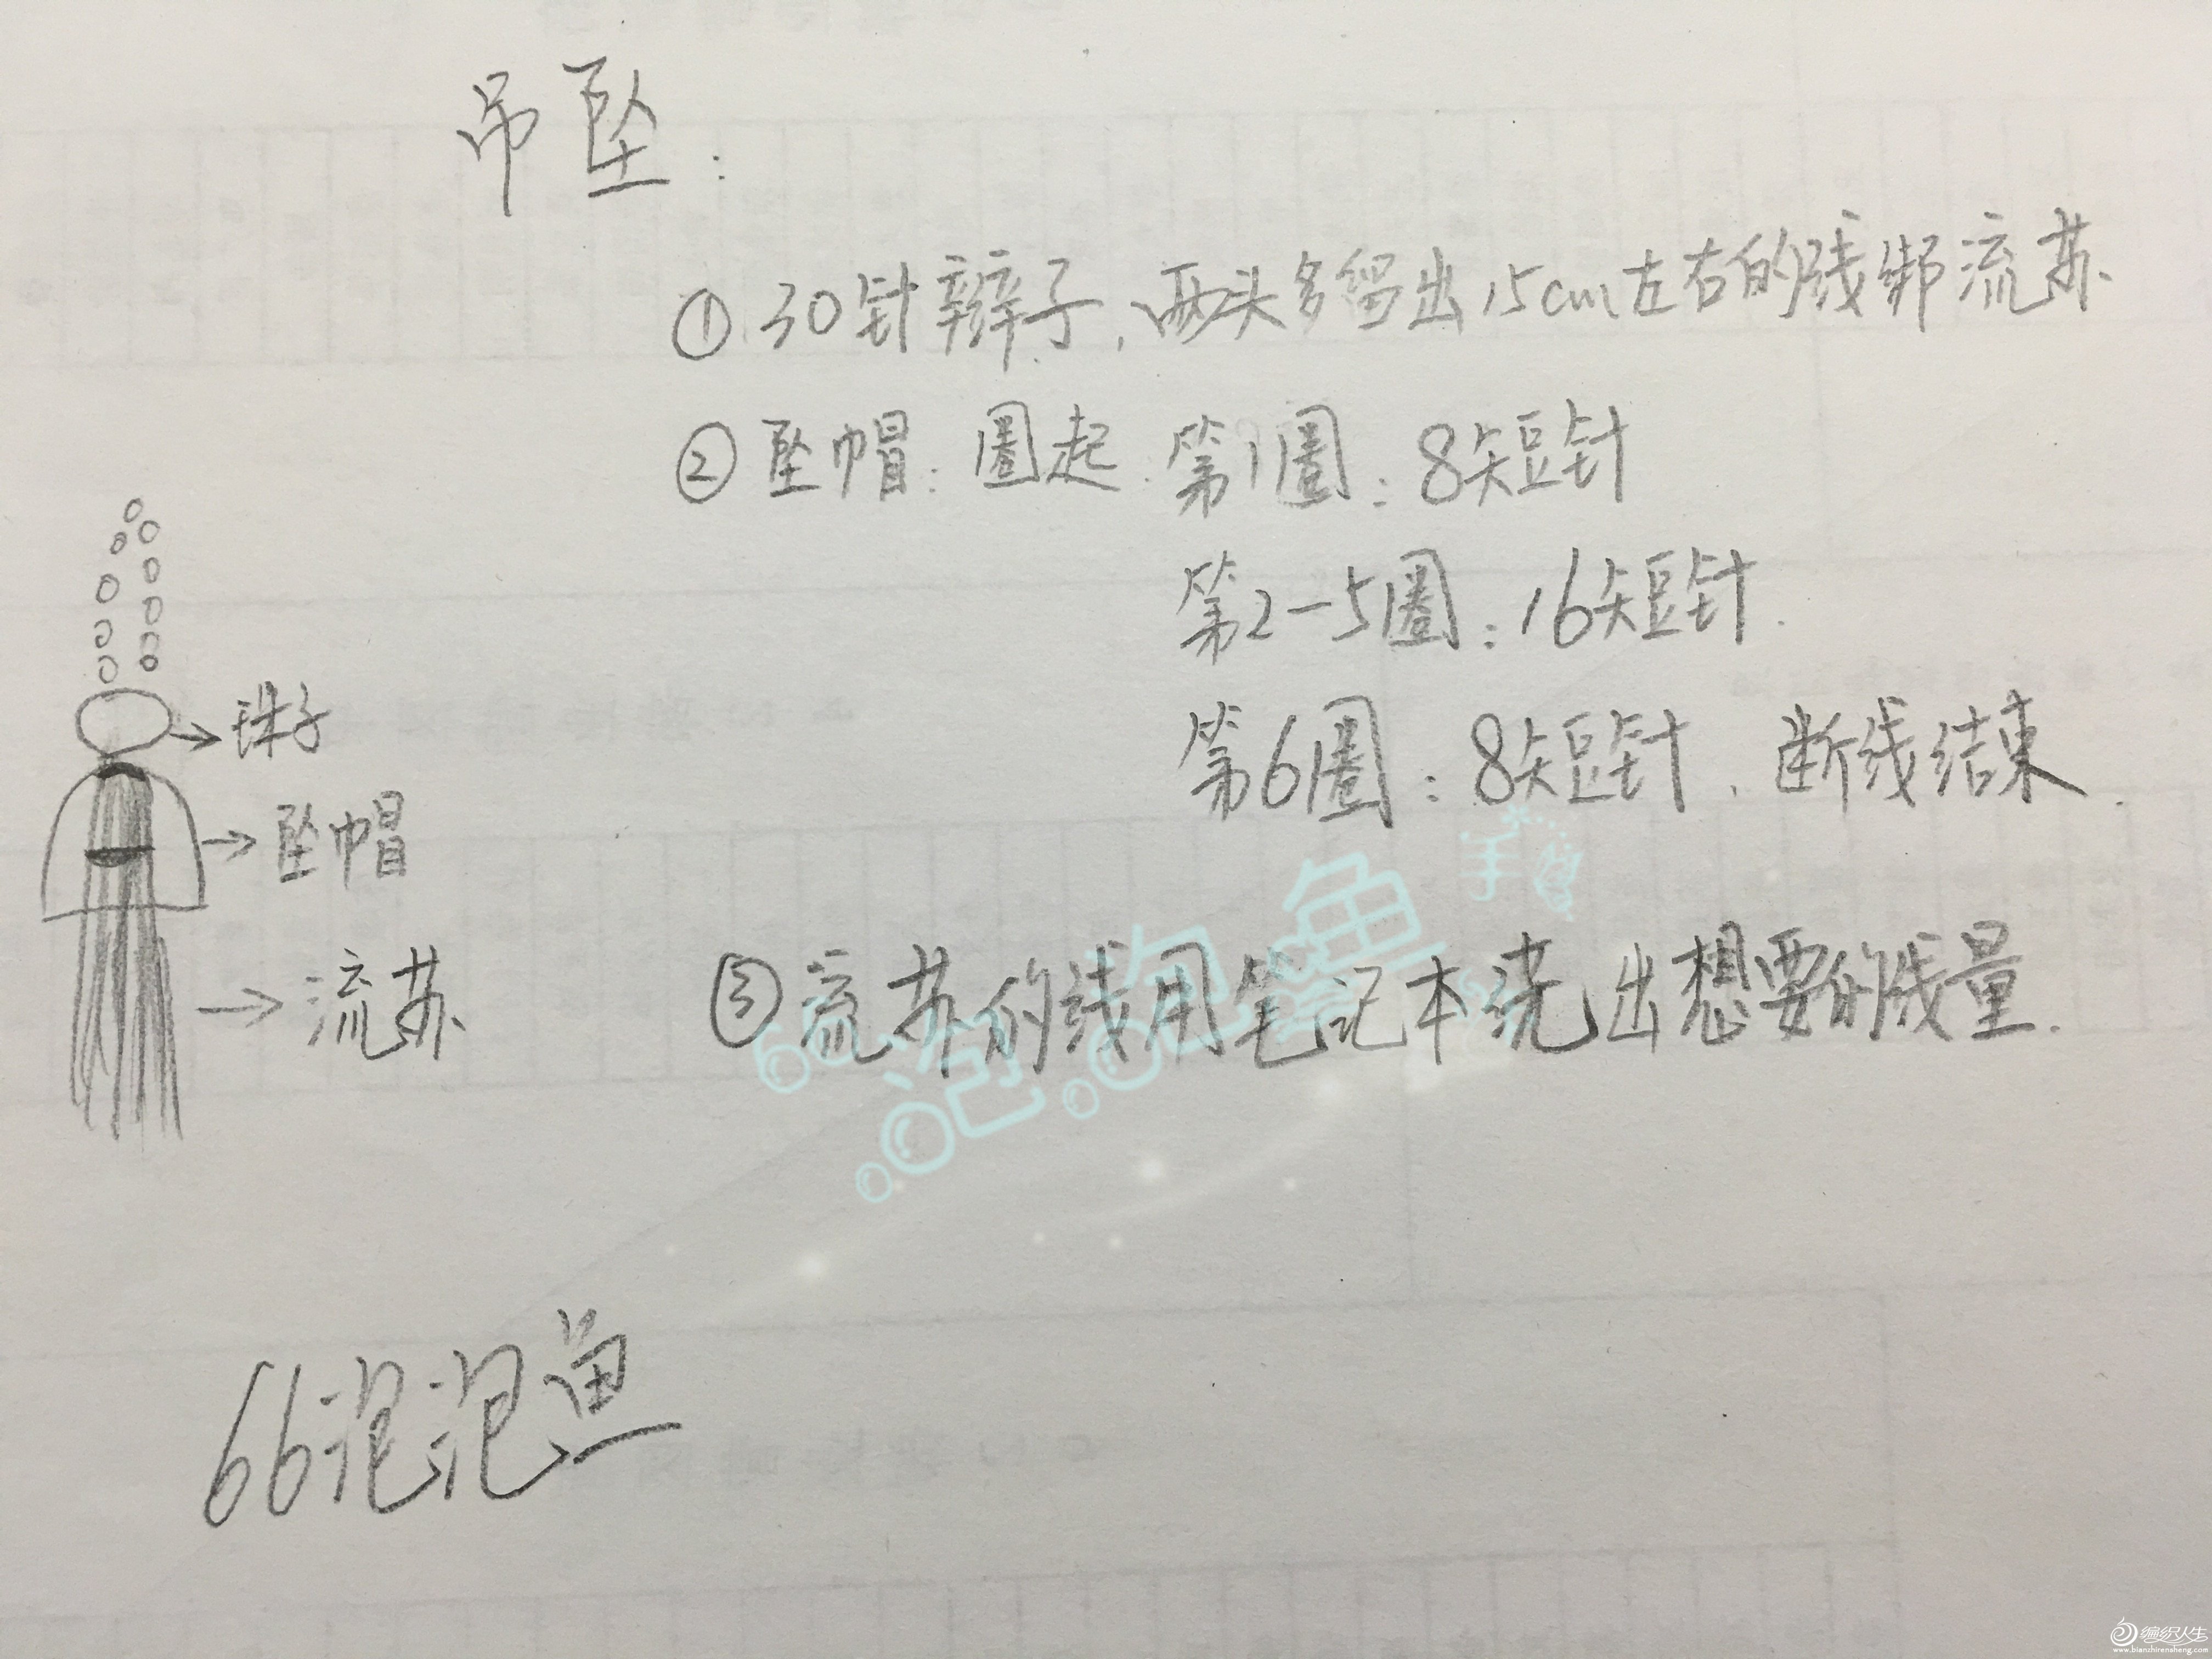 吊坠:
① 30针辫子,两头多留出15cm左右的线绑流苏
② 坠帽:圈起.第1圈:8矢短针
第2-5圈:16矢短针.
第6圈:8矢短针.断线结束.
→珠子
→坠帽
→流苏
③流苏的线用笔记本绕出想要的线量.
66泡泡鱼
66泡泡鱼手
编织人生
www.bianzhirensheng.com